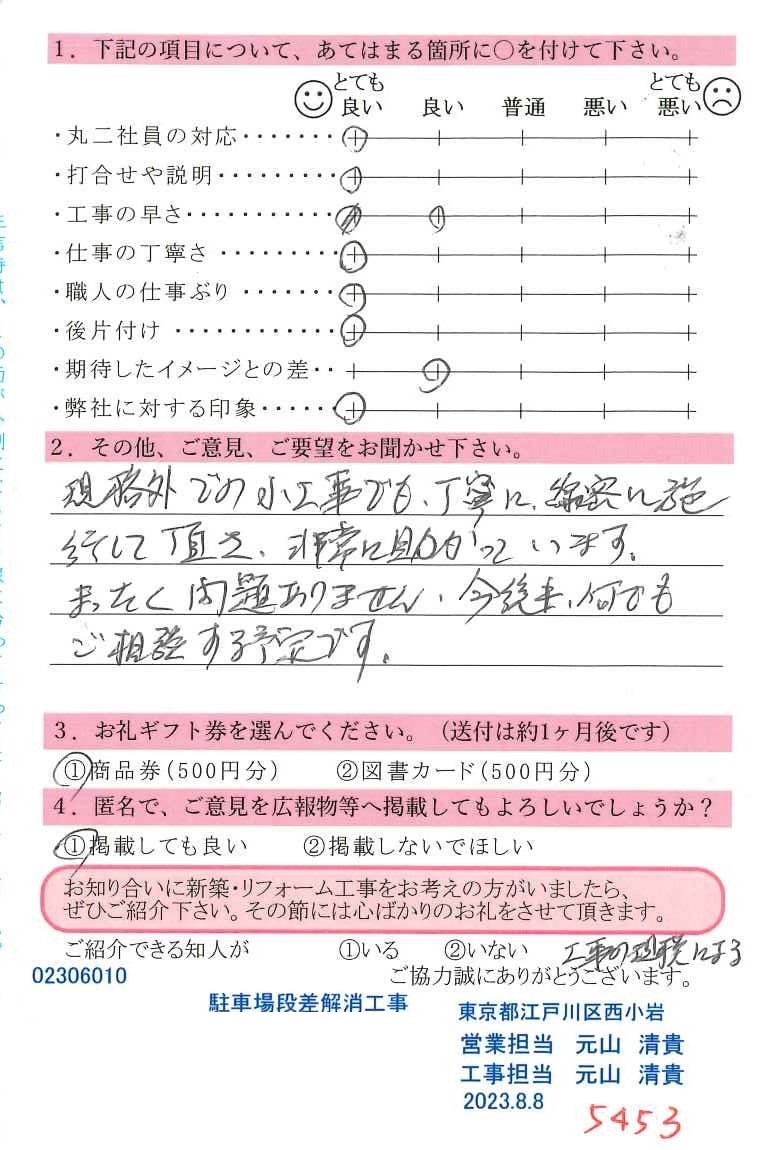 1．下記の項目について、あてはまる箇所に○を付けて下さい。
とても良い 良い 普通 悪い とても悪い
・丸二社員の対応・・・・・・・
・打合せや説明・・・・・・・・・
・工事の早さ・・・・・・・・・・・
・仕事の丁寧さ ・・・・・・・・・
・職人の仕事ぶり ・・・・・・・
・後片付け ・・・・・・・・・・・・
・期待したイメージとの差・・
・弊社に対する印象・・・・・
2．その他、ご意見、ご要望をお聞かせ下さい。
規格外での小工事でも、丁寧に、綿密に施
行して頂き、非常に助かっています。
まったく問題ありません、今後共、何でも
ご相談する予定です。
3．お礼ギフト券を選んでください。（送付は約1ヶ月後です）
①商品券(500円分) ②図書カード(500円分)
4．匿名で、ご意見を広報物等へ掲載してもよろしいでしょうか？
①掲載しても良い ②掲載しないでほしい
お知り合いに新築・リフォーム工事をお考えの方がいましたら、
ぜひご紹介下さい。その節には心ばかりのお礼をさせて頂きます。
ご紹介できる知人が ①いる ②いない 工事の による
ご協力誠にありがとうございます。
02306010
駐車場段差解消工事
東京都江戸川区西小岩
営業担当 元山 清貴
工事担当 元山 清貴
2023.8.8
5453